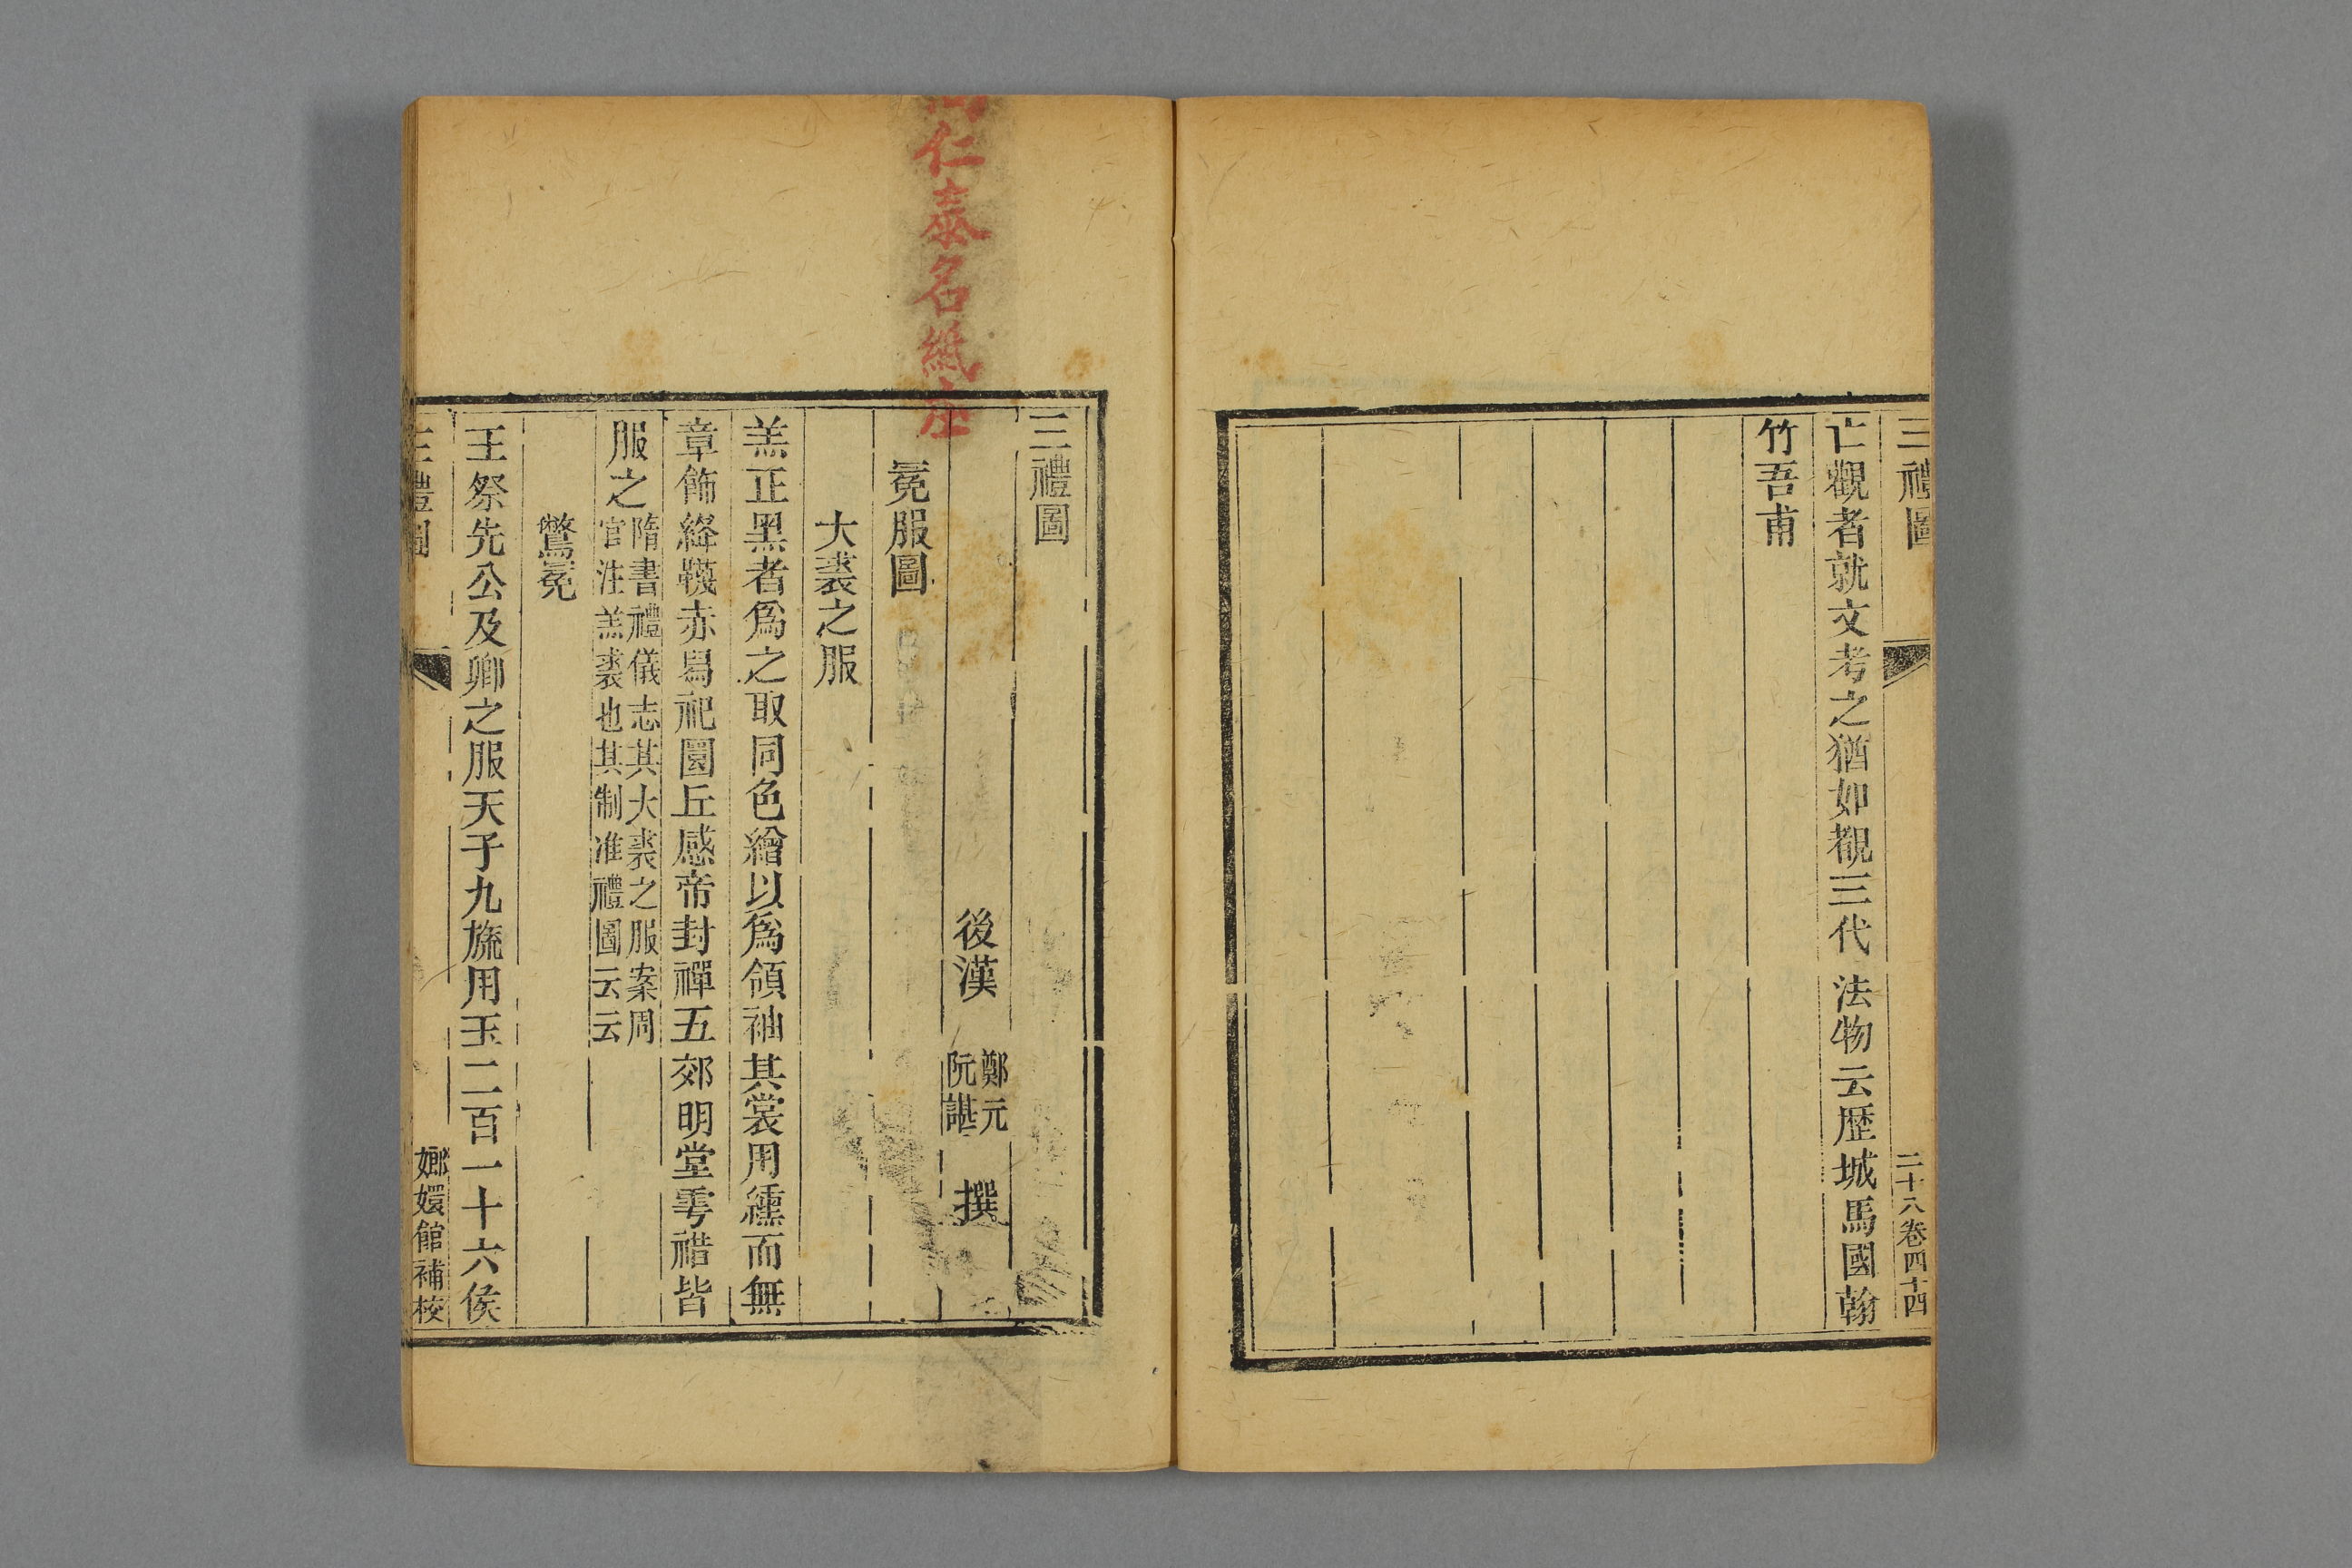 三禮圖
二十八卷四十四
亡觀者就文考之猶如覩三代法物云歷城馬國翰
竹吾甫
仁泰名紙
三禮圖
後漢
鄭元
阮諶
撰
冕服圖
大裘之服
羔正黑者爲之取同色繒以爲領袖其裳用纁而無
章飾絳韈赤舄祀圜丘感帝封禪五郊明堂雩䄍皆
服之
隋書禮儀志其大裘之服案周
官注羔裘也其制准禮圖云云
鷩冕
王祭先公及卿之服天子九旒用玉二百一十六侯
三禮圖
嫏嬛館補校